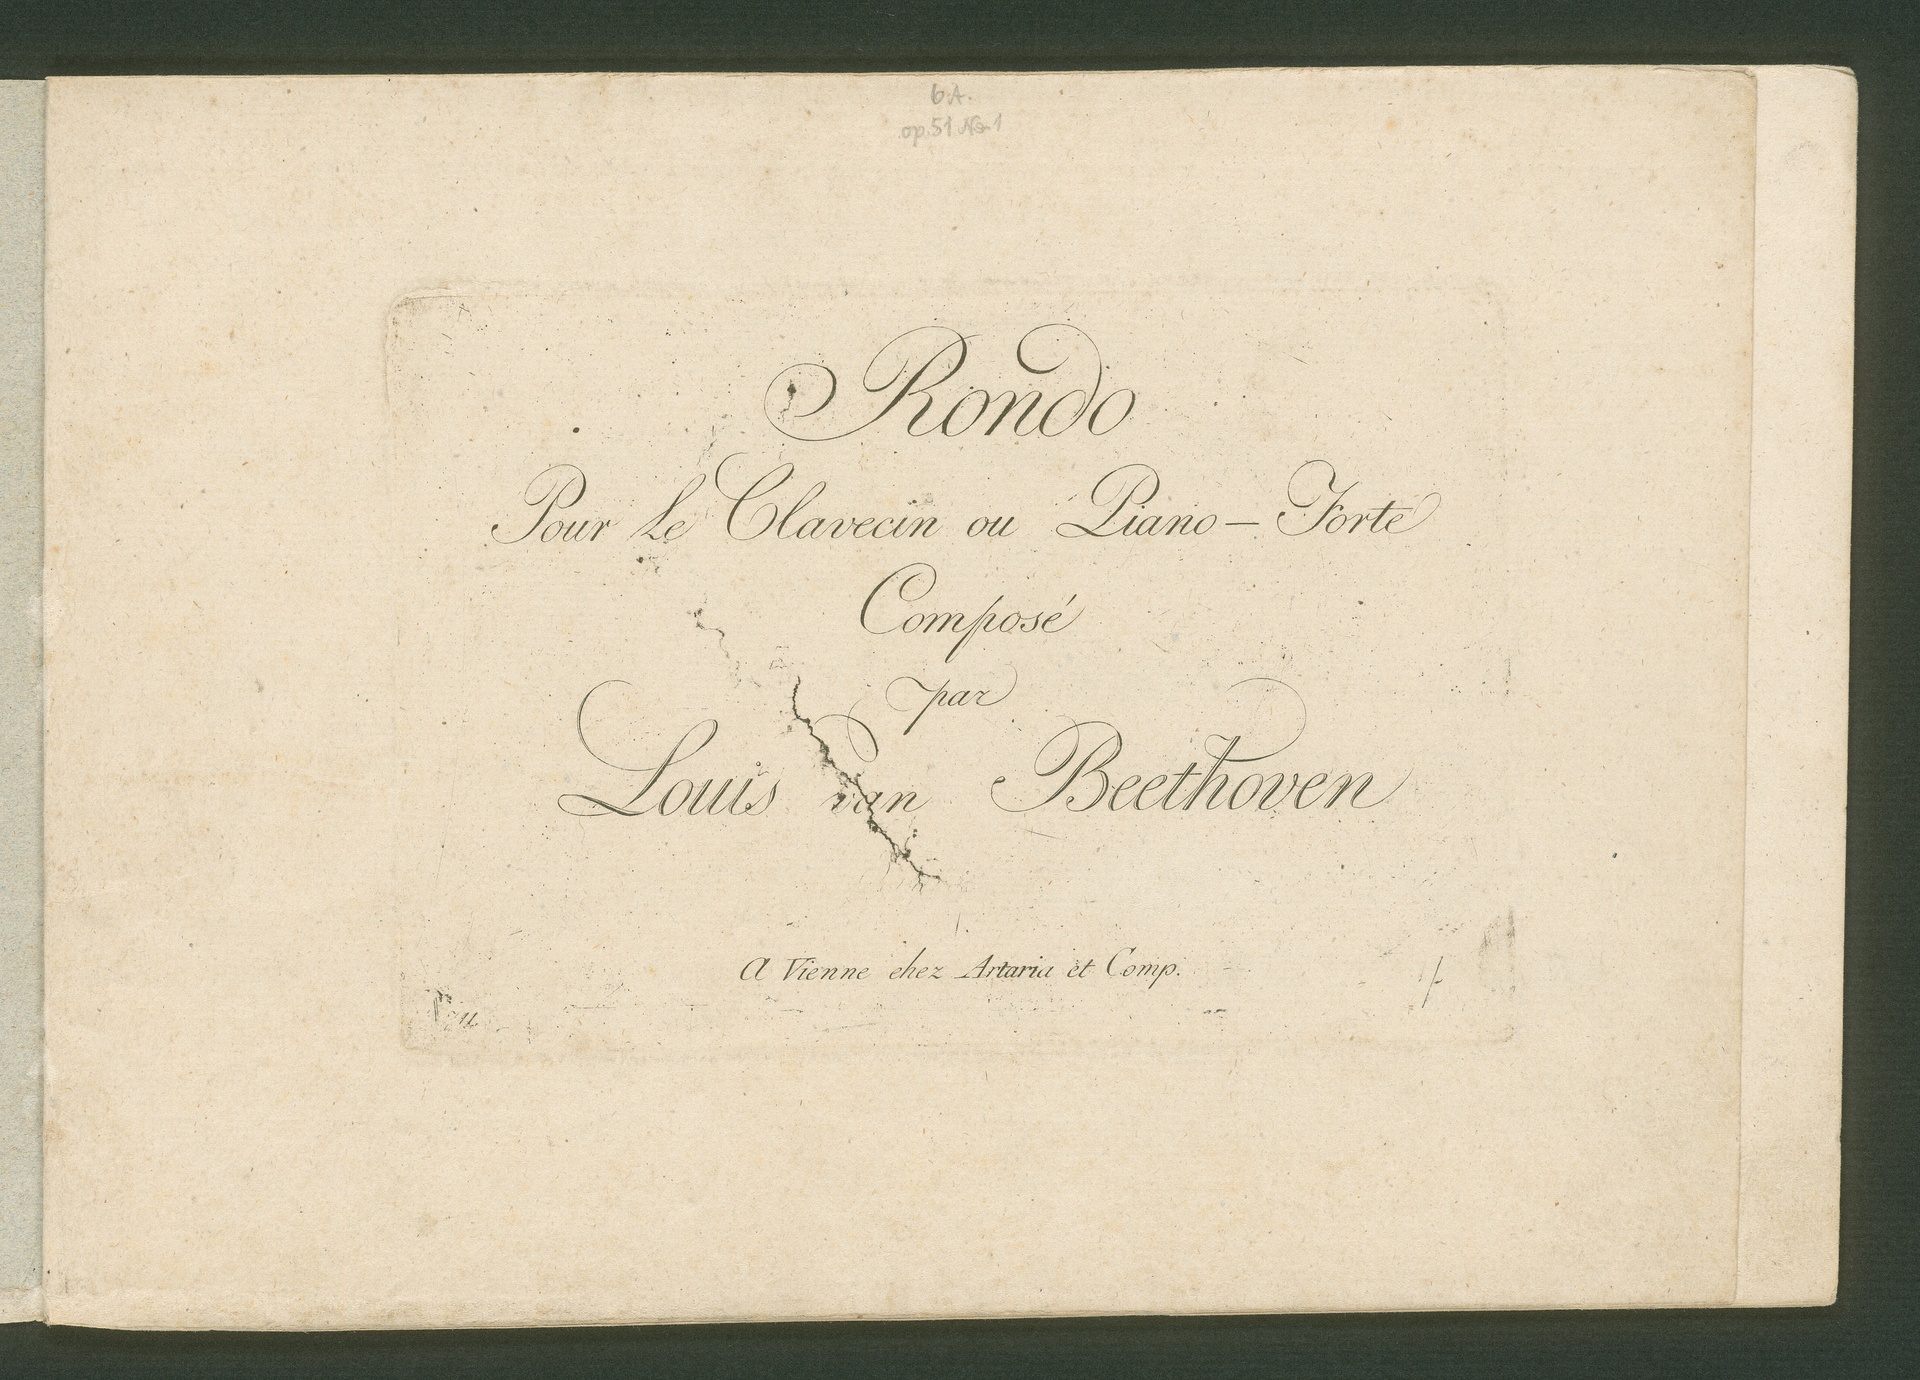 6.A.
op.51 No 1
Rondo
Pour Le Clavecin ou Piano-Forte
Composé
par
Louis van Beethoven
A Vienne chez Artaria et Comp.